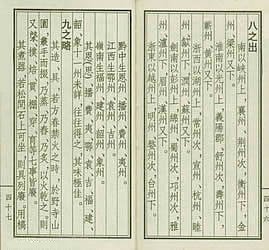 八之出
山南以峽州上，襄州、荊州次，衡州下，金
州、梁州又下。
淮南以光州上，義陽郡、舒州次，壽州下，
蘄州、黃州又下。
浙西以湖州上，常州次，宣州、杭州、睦
州、歙州下，潤州、蘇州又下。
劍南以彭州上，綿州、蜀州次，邛州次，雅
州、瀘州下，眉州、漢州又下。
浙東以越州上，明州、婺州次，台州下。
四十六
黔中生恩州、播州、費州、夷州。
江西生鄂州、袁州、吉州。
嶺南生福州、建州、韶州、象州。
其恩(思)、播、費、夷、鄂、袁、吉、福、建、
韶、象十一州未詳，往往得之，其味極佳。
九之略
其造具，若方春禁火之時，於野寺山
園叢手而掇，乃蒸、乃舂、乃炙，以火乾之，則
又棨、樸、焙、貫、棚、穿、育等七事皆廢。
其煮器，若松間石上可坐，則具列廢。用槁
四十七